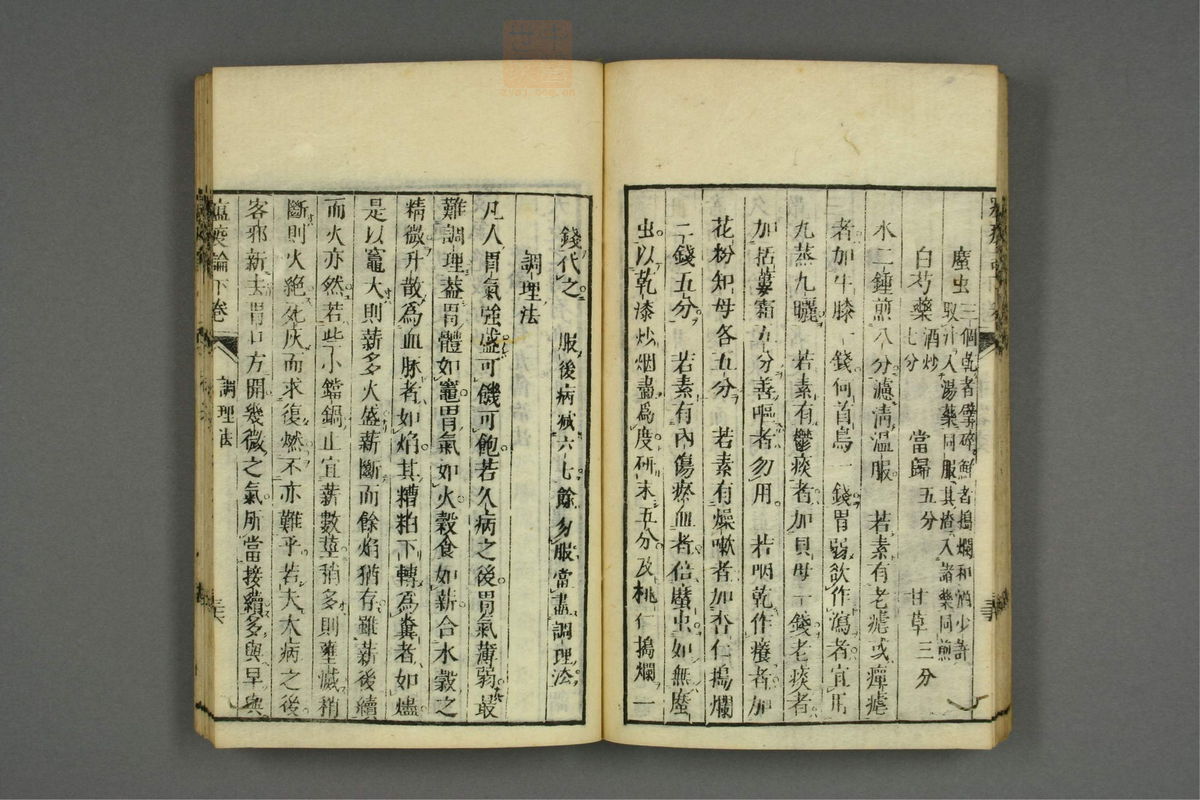 䗪虫
三個乾者擘碎鮮者搗爛和酒少許
取汁入湯藥同服其渣入諸藥同煎
白芍藥 酒炒七分 當歸 五分 甘草 三分
水二鍾煎八分濾清溫服 若素有老瘧或癉瘧
者加牛膝一錢何首烏一錢胃弱欲作瀉者宜用
九蒸九曬 若素有鬱痰者加貝母一錢老痰者
加括蔞霜五分善嘔者勿用 若咽乾作癢者加
花粉知母各五分 若素有燥嗽者加杏仁搗爛
一錢五分 若素有內傷瘀血者倍䗪虫如無䗪
虫以乾漆炒烟盡為度研末五分及桃仁搗爛一
錢代之 服後病減六七餘勿服當盡調理法
調理法
凡人胃氣強盛可饑可飽若久病之後胃氣薄弱最
難調理葢胃體如竈胃氣如火穀食如薪合水穀之
精微升散為血脉者如焰其糟粕下轉為糞者如燼
是以竈大則薪多火盛薪斷而餘焰猶存雖薪後續
而火亦然若些小鐺鍋止宜薪數莖稍多則壅滅稍
斷則火絕死灰而求復燃不亦難乎若夫大病之後
客邪新去胃口方開幾微之氣所當接續多與早與
瘟疫論下卷 調理法